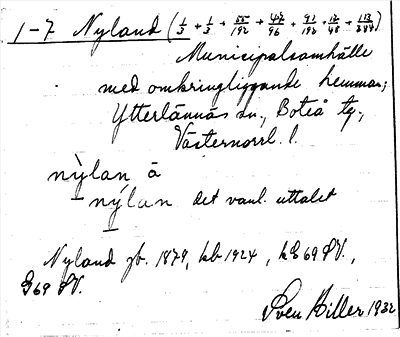 1-7 Nyland (1/3 + 1/3 + 55/192 + 42/96 + 91/192 + 12/48 + 113/384)
Municipalsamhälle
med omkringliggande hemman;
Ytterlännäs sn., Boteå tg.,
Västernorrl. l.
nỳlan å
nýlan det vanl. uttalet
Nyland jb. 1879, kb 1924, kE 69 SV.,
G69 SV.
Sven Hiller 1932